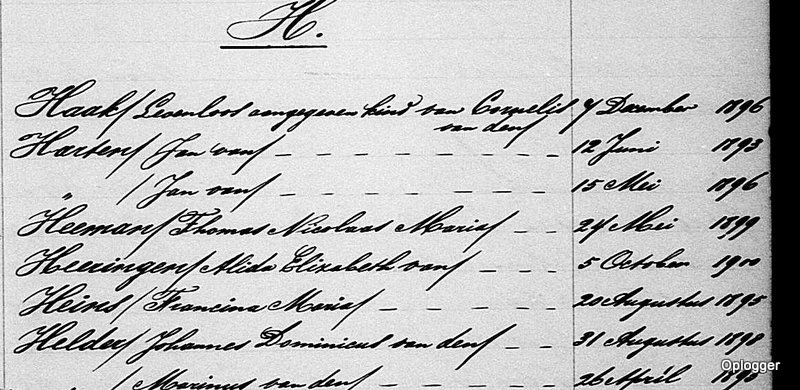 H.
Haak / Levenloos aangegeven kind van Cornelis van den / 7 December 1896
Harten / Jan van / 12 Juni 1893
„ / Jan van / 15 Mei 1896
Heeman / Thomas Nicolaas Maria / 24 Mei 1899
Heeringen / Alida Elizabeth van / 5 October 1900
Heins / Francina Maria / 20 Augustus 1895
Helder / Johannes Dominicus van den / 31 Augustus 1898
„ / Marinus van den / 26 April
Oplogger